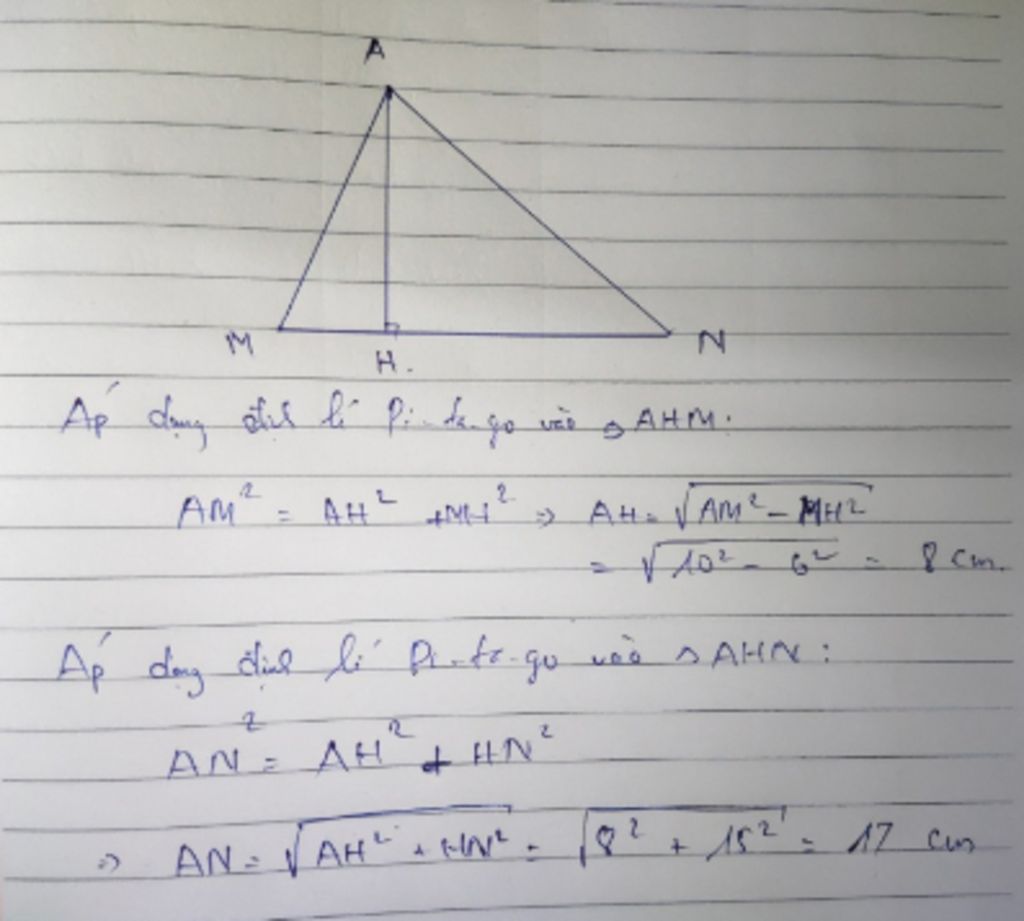 A
M
H.
N
Áp dụng định lí Pi-ta-go vào △ AHM:
AM² = AH² + MH² ⇒ AH = √(AM² - MH²)
= √(10² - 6²) = 8 cm.
Áp dụng định lí Pi-ta-go vào △ AHN:
AN² = AH² + HN²
⇒ AN = √(AH² + HN²) = √(8² + 15²) = 17 cm